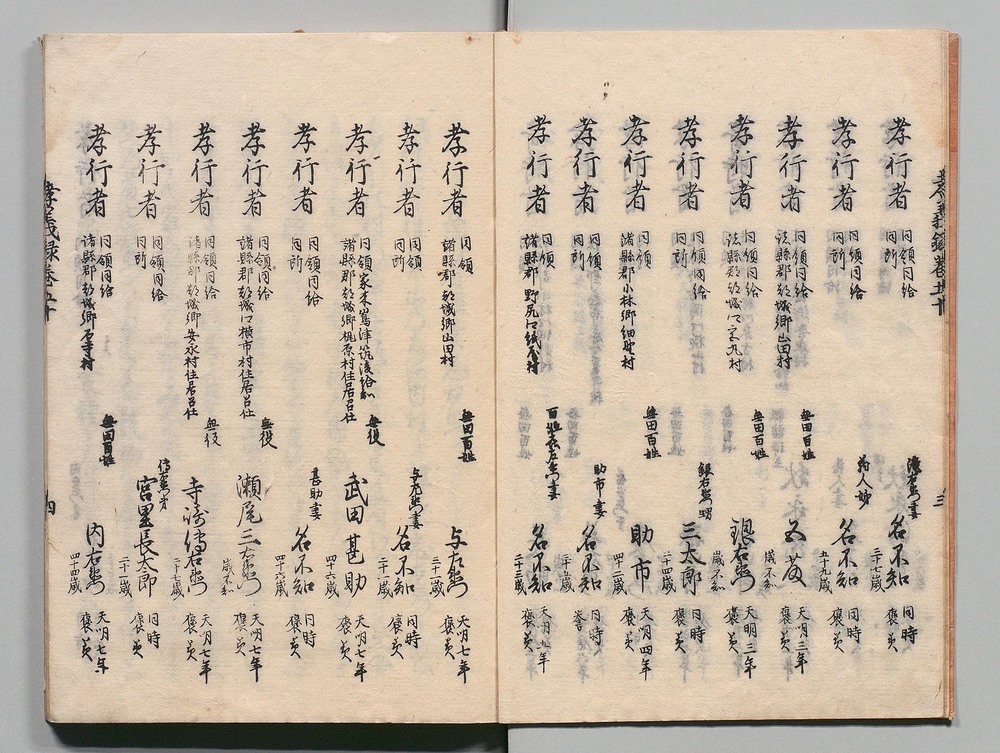 孝行者 同領同給 同所 名不知 同時 褒美
孝行者 同領同給 同所 名不知 五十九歳 同時 褒美
孝行者 同領同給 諸縣郡都城郷山田村 無田百姓 歳不知 天明三年 褒美
孝行者 同領同給 諸縣郡都城口 無田百姓 銀右衛門 歳不知 天明三年 褒美
孝行者 同領同給 同所 銀右衛門甥 三太郎 二十四歳 同時 褒美
孝行者 同領 諸縣郡小林郷細野村 無田百姓 助市 四十二歳 天明四年 褒美
孝行者 同領 同所 助市妻 名不知 同時 誉
孝行者 同領 諸縣郡野尻口紙屋村 名不知 三十三歳 褒美
三
孝行者 同領 諸縣郡都城郷山田村 無田百姓 三十一歳 天明七年 褒美
孝行者 同領 同所 名不知 三十一歳 同時 褒美
孝行者 同領家来嶌津筑後給知 諸縣郡都城郷梶原村住居召仕 無役 武田甚助 四十六歳 天明七年 褒美
孝行者 同領同給 同所 甚助妻 名不知 四十六歳 同時 褒美
孝行者 同領同給 諸縣郡都城口横市村住居召仕 無役 瀬尾三右衛門 歳不知 天明七年 褒美
孝行者 同領同給 諸縣郡都城郷安永村住居召仕 無役 二十七歳 天明七年 褒美
孝行者 同領同給 同所 宮里長太郎 二十一歳 同時 褒美
孝行者 同領同給 諸縣郡都城郷石寺村 無田百姓 内右衛門 四十四歳 天明七年 褒美
孝義録巻五十 四